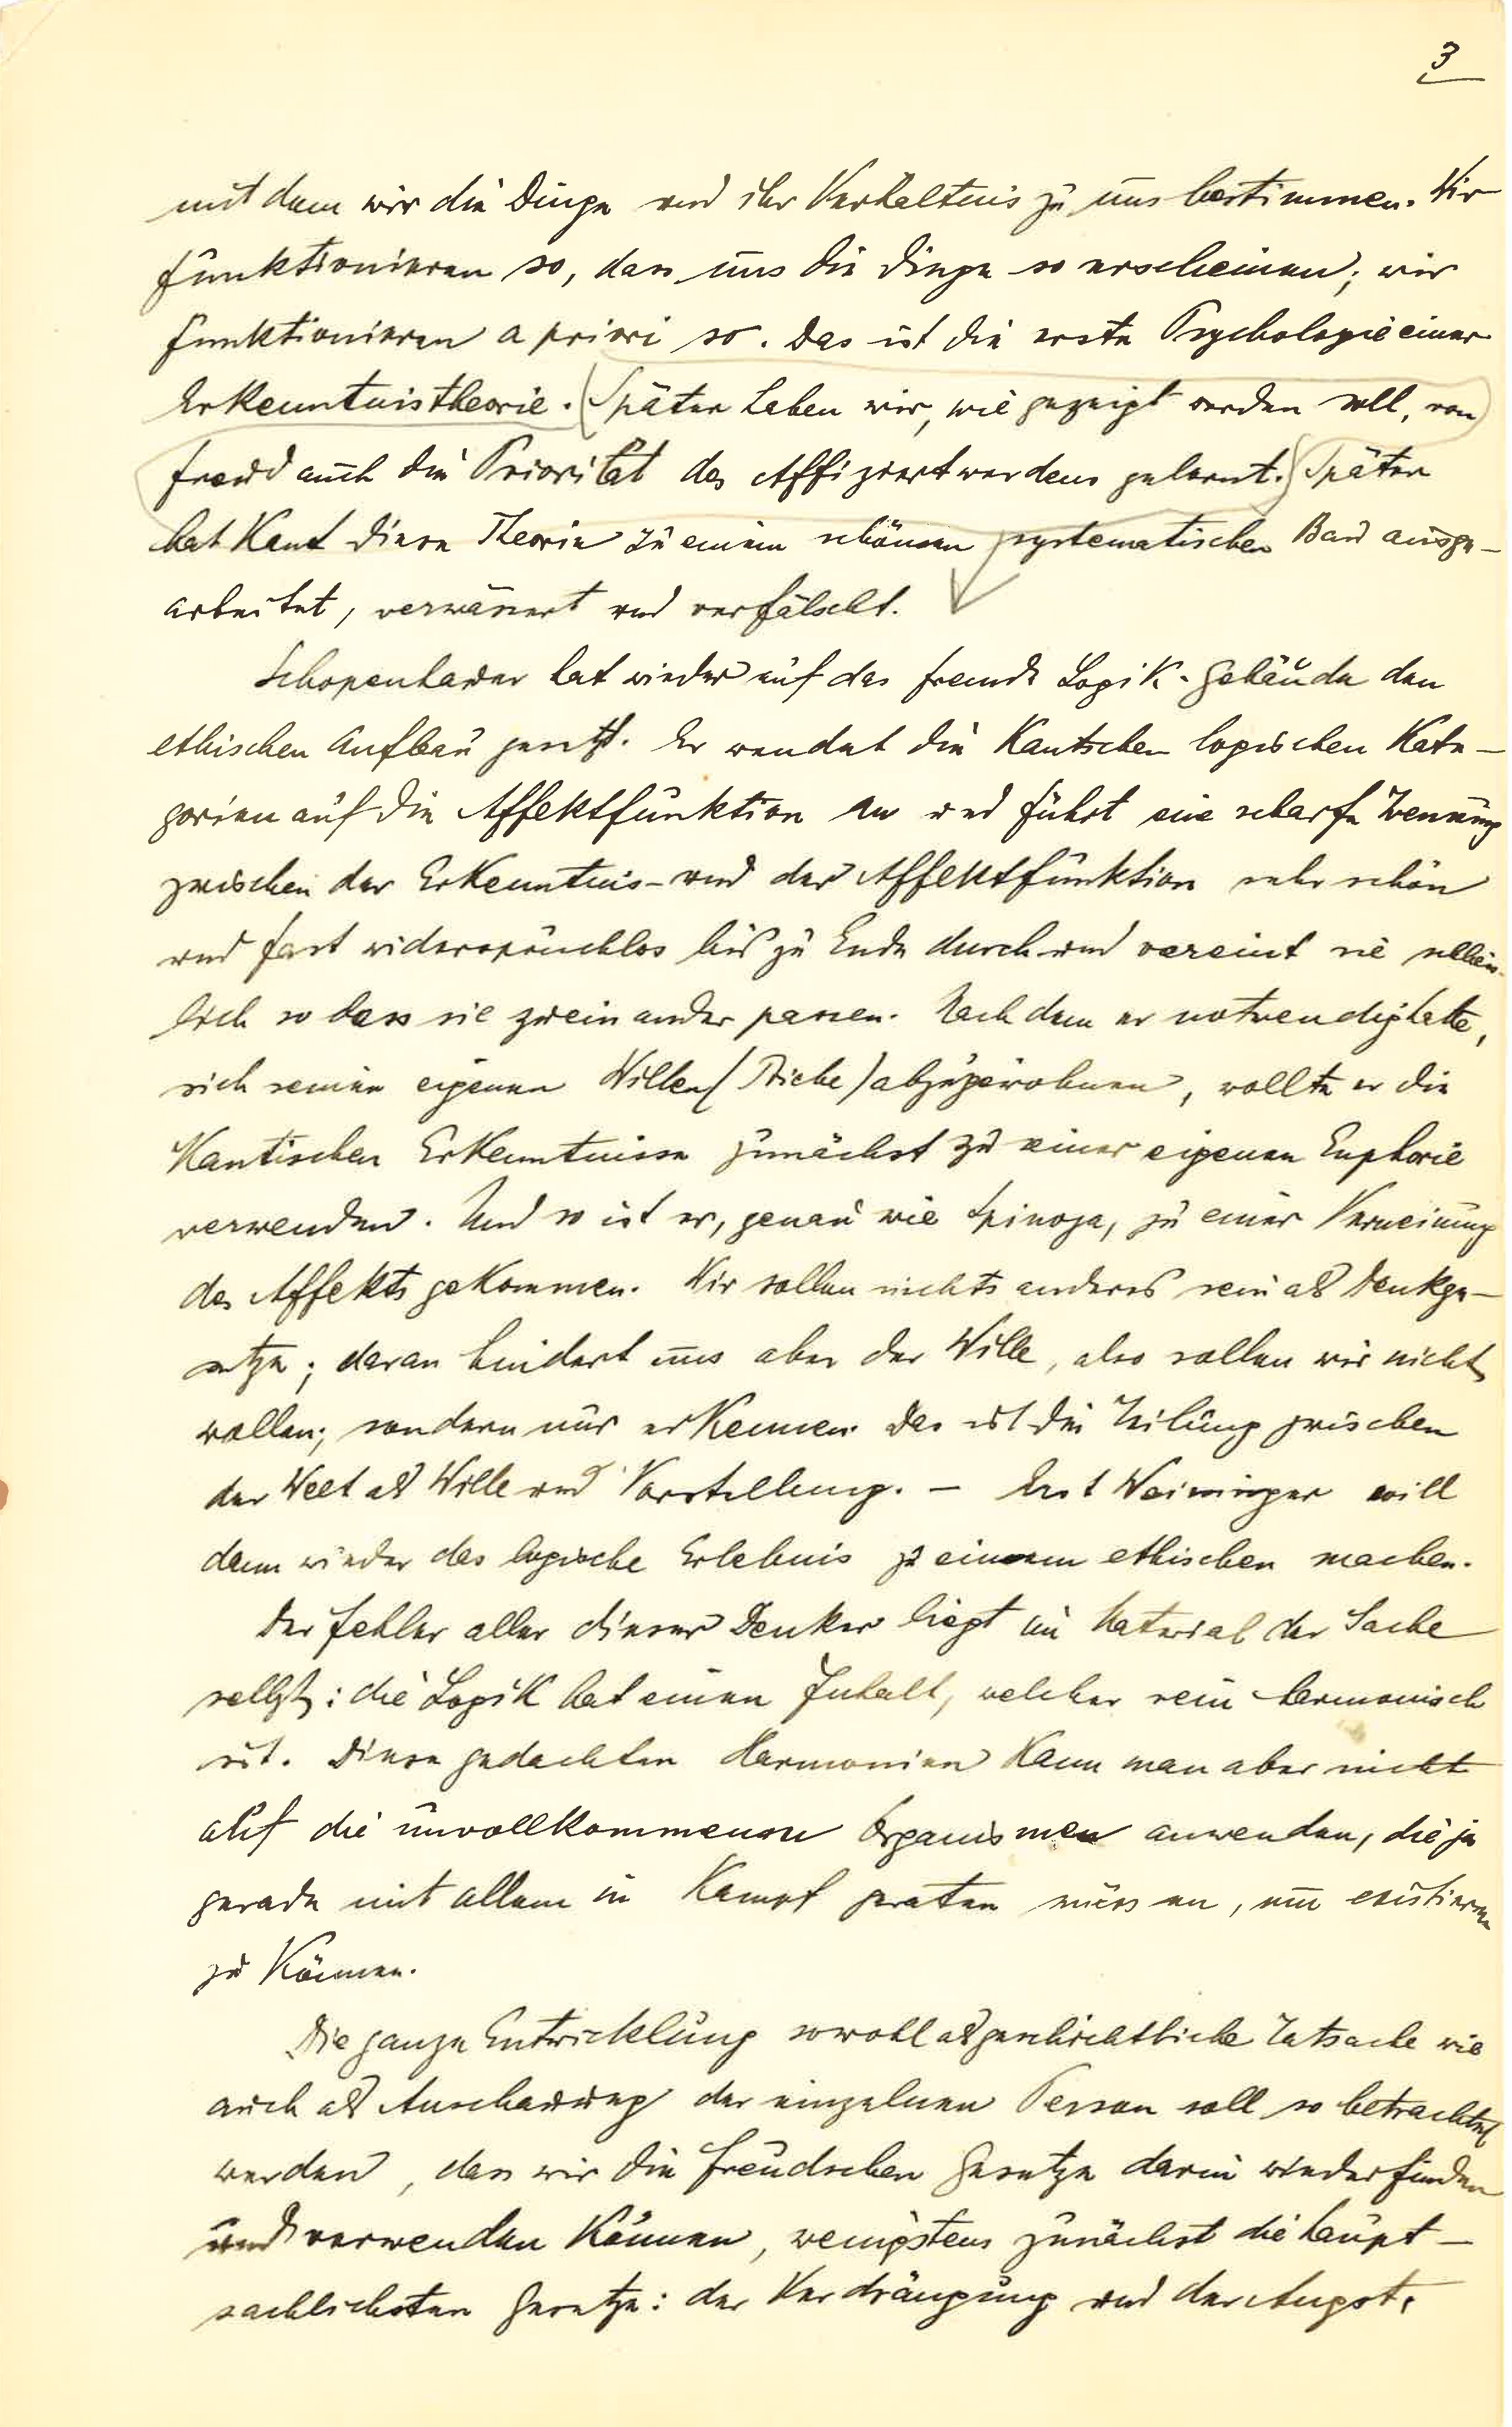 3
mit dem wir die Dinge und ihr Verhältnis zu uns bestimmen. Wir
funktionieren so, dass uns die Dinge so erscheinen; wir
funktionieren a priori so. Das ist die erste Psychologie einer
Erkenntnistheorie. (Später haben wir, wie gezeigt werden soll, von
Freud auch die Priorität des Affiziertwerdens gelernt.) Später
hat Kant diese Theorie zu einem schönen systematischen Bau ausge-
arbeitet, verwässert und verfälscht.
Schopenhauer hat wieder auf das fremde Logik-Gebäude den
ethischen Aufbau gesetzt. Er wendet die Kantschen logischen Kate-
gorien auf die Affektfunktion an und führt eine scharfe Trennung
zwischen der Erkenntnis- und der Affektfunktion sehr schön
und fast widerspruchlos bis zu Ende durch und vereint sie schliess-
lich so dass sie zueinander passen. Nachdem er notwendig hatte,
sich seinen eigenen Willen (Triebe) abzugewöhnen, wollte er die
Kantischen Erkenntnisse zunächst zu einer eigenen Euphorie
verwenden. Und so ist er, genau wie Spinoza, zu einer Verneinung
des Affekts gekommen. Wir sollen nichts anderes sein als Denkge-
setze; daran hindert uns aber der Wille, also sollen wir nicht
wollen; sondern nur erkennen. Das ist die Teilung zwischen
der Welt als Wille und Vorstellung. – Erst Weininger will
dann wieder das logische Erlebnis zu einem ethischen machen.
Der Fehler aller dieser Denker liegt im Material der Sache
selbst: die Logik hat einen Inhalt, welcher rein harmonisch
ist. Diese gedachten Harmonien kann man aber nicht
auf die unvollkommenen Organismen anwenden, die ja
gerade mit allem in Kampf geraten müssen, um existieren
zu können.
Die ganze Entwicklung sowohl als geschichtliche Tatsache wie
auch als Anschauung der einzelnen Person soll so betrachtet
werden, dass wir die Freudschen Gesetze darin wiederfinden
und verwenden können, wenigstens zunächst die haupt-
sachlichsten Gesetze: der Verdrängung und der Angst.